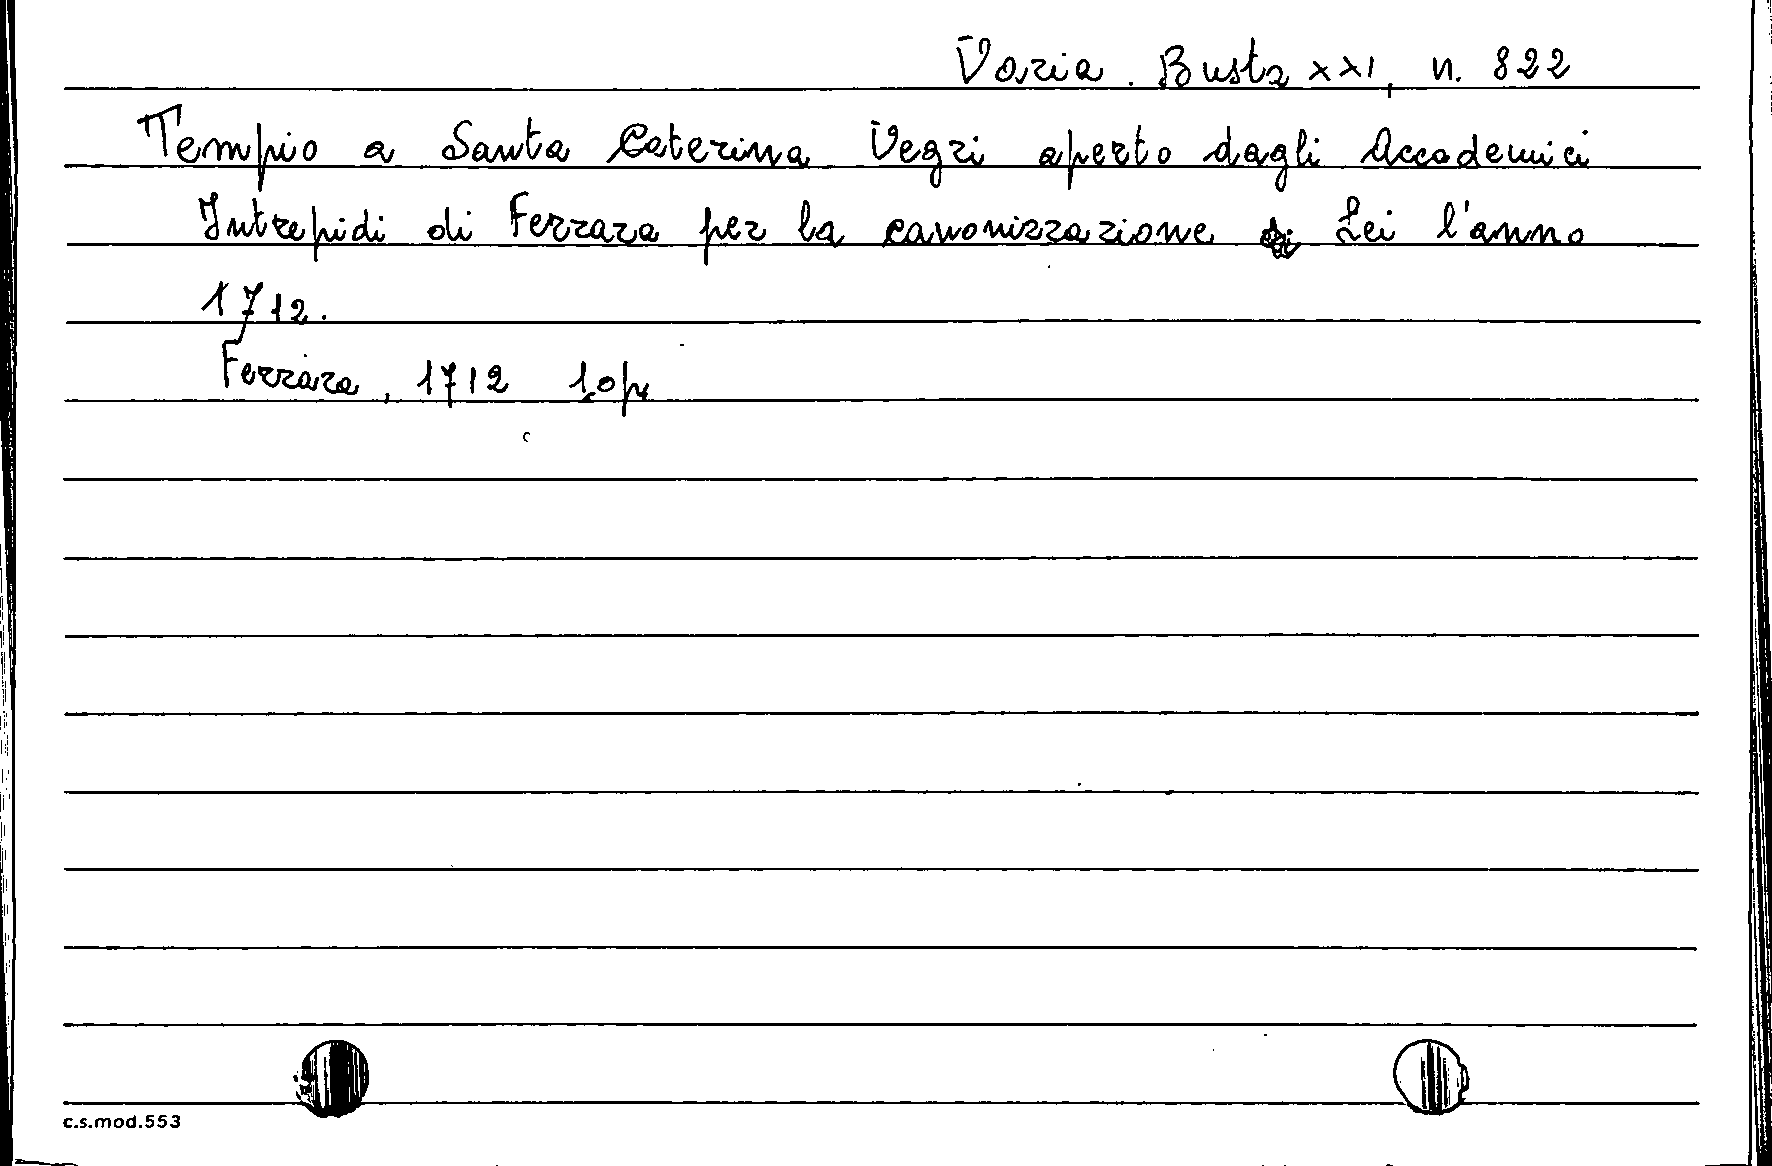 Varia. Busta XXI, n. 822
Tempio a Santa Caterina Vegri aperto dagli Accademici
Intrepidi di Ferrara per la canonizzazione di Lei l'anno
1712.
Ferrara, 1712
c.s.mod.553